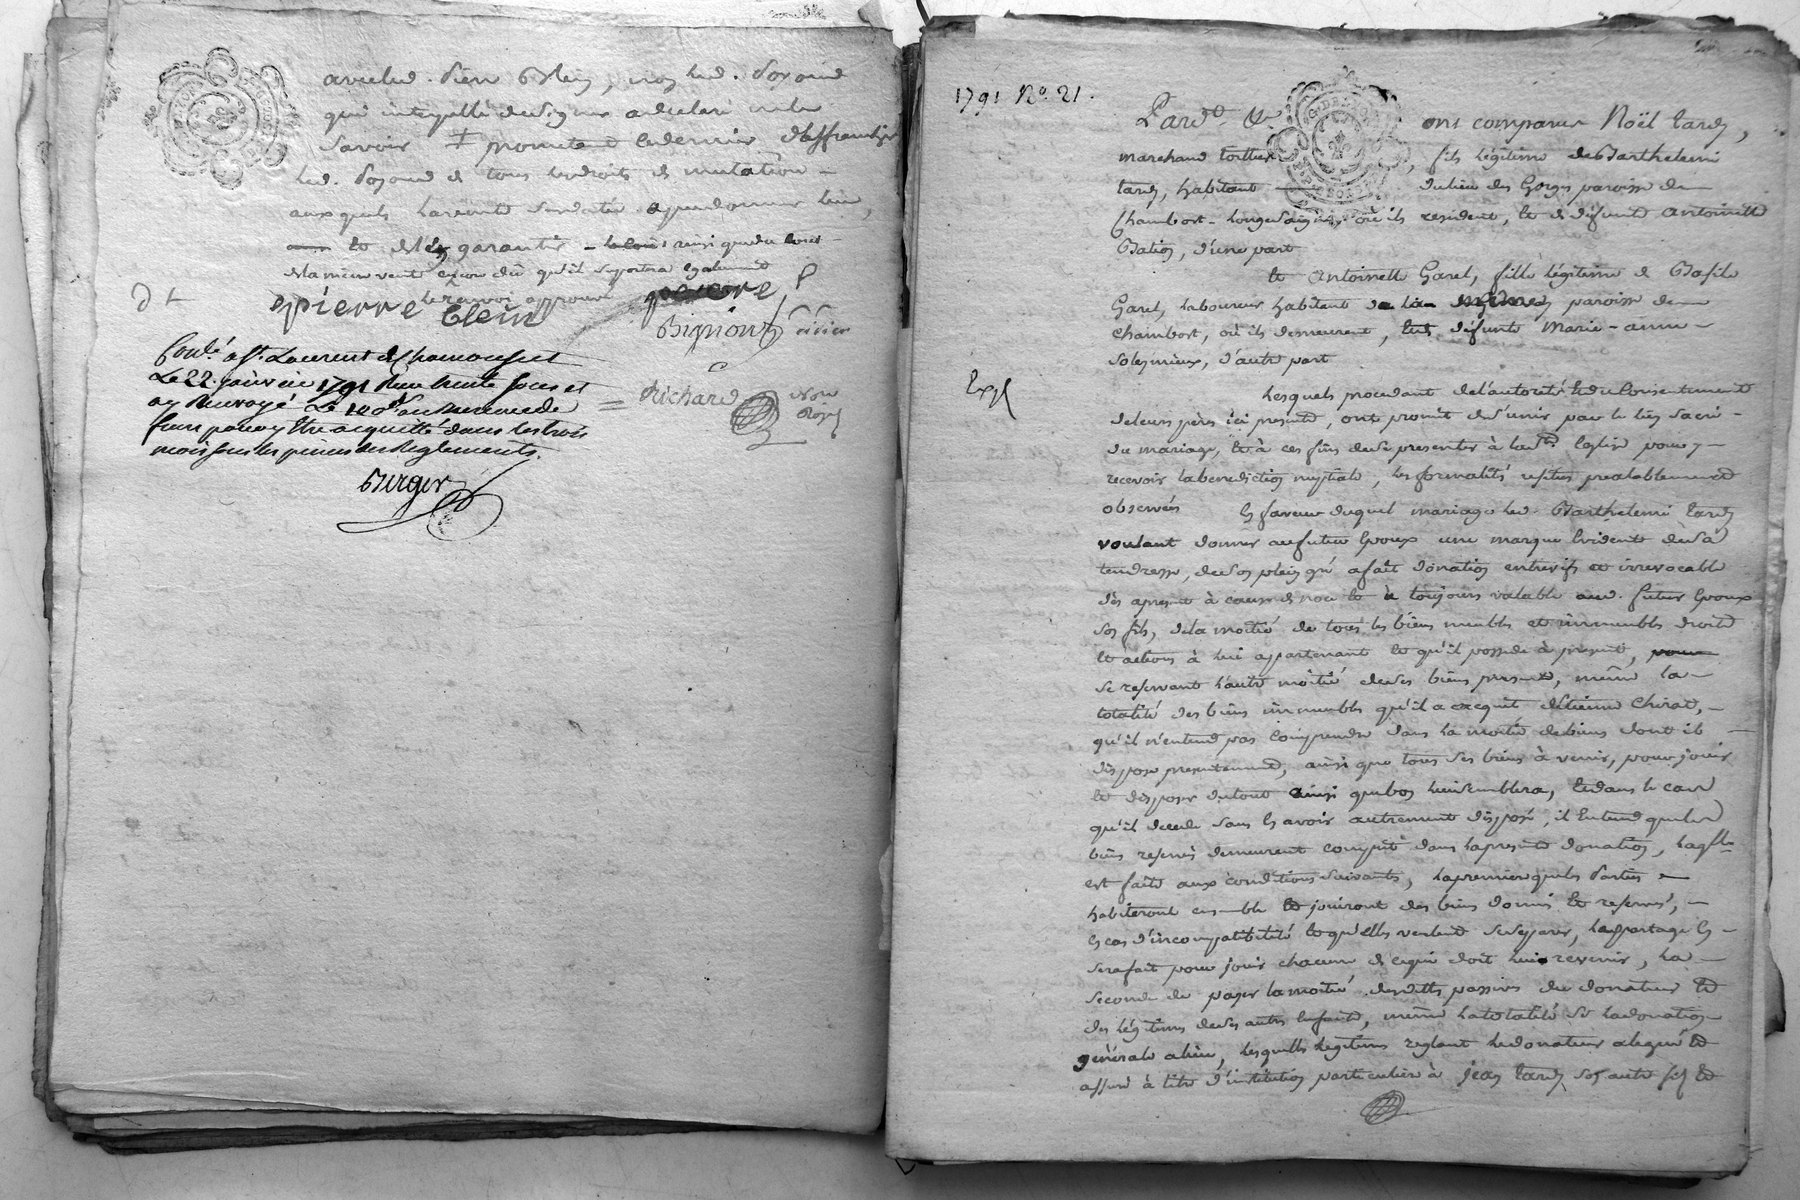 avec led. Pierre Blein, non led. Poyard
qui interpellé de signer a déclaré ne le
savoir ‡ promettant ce dernier d'affranchir
led. Poyard de tous les droits de mutation –
auxquels la vente
et de l'en garantir – ainsi que du cours
de la même vente qu'il supportera également
le renvoi approuvé
pierre blein
Bignont
Richard
Conlé. a St. Laurent de Chamousset
Le 22. janvier 1791 Reçu trente sous et
ay renvoyé Le 100e au Bureau de
pour y être acquitté dans les trois
mois sous les peines des Règlements.
Berger
1791 No. 21.
Pardt. &r. ont comparu Noël tardy,
marchand , fils légitime de Barthelemi
tardy, habitant du lieu des Gorges paroisse de
Chambost-Longessaigne où ils resident, et de défunte antoinette
Bation, d'une part
et Antoinette Garel, fille légitime de Basile
Garel, laboureur habitant paroisse de
Chambost, où ils demeurent, et de défunte Marie-anne
solesmieux, d'autre part
Expé
Lesquels procedant de l'autorité et du consentement
de leurs pères ici présents, ont promis de s'unir par le lien sacré
du mariage, et à ces fins de se presenter à la Ste Eglise pour y
recevoir la benediction nuptiale, les formalités usitées prealablement
observées En faveur duquel mariage led. Barthelemi tardy
voulant donner au futur Epoux une marque Evidente de sa
tendresse, de son plein gré a fait donation entrevifs et irrevocable
dès apresent à cause de noce et à toujours valable aud. futur Epoux
son fils, de la moitié de tous les biens meubles et immeubles droits
et actions à lui appartenant et qu'il possede à présent, pour
se reservant l'autre moitié de ses biens presents, même la
totalité des biens immeubles qu'il a acquit d'Etienne Chirat,
qu'il n'entend pas comprendre dans la moitié de biens dont il
dispose presentement, ainsi que tous ses biens à venir, pour jouir
et disposer du tout ainsi que bon lui semblera, Et dans le cas
qu'il decede sans En avoir autrement disposé, il Entend que les
biens reservés demeurent compris dans la presente donation, laqlle
est faite aux conditions suivantes, la premiere que les Parties
habiteront ensemble et jouiront des biens donnés et reservés,
En cas d'incompatibilité et qu'elles veulent se separer, le partage En
sera fait pour jouir chacun de ce qui doit lui revenir, la
seconde de payer la moitié des dettes passives du donateur et
des légitimes de ses autres Enfants, même la totalité si la donation
générale a lieu, lesquelles légitimes reglant le donateur a legué et
assuré à titre d'institution particuliere à jean tardy son autre fils et